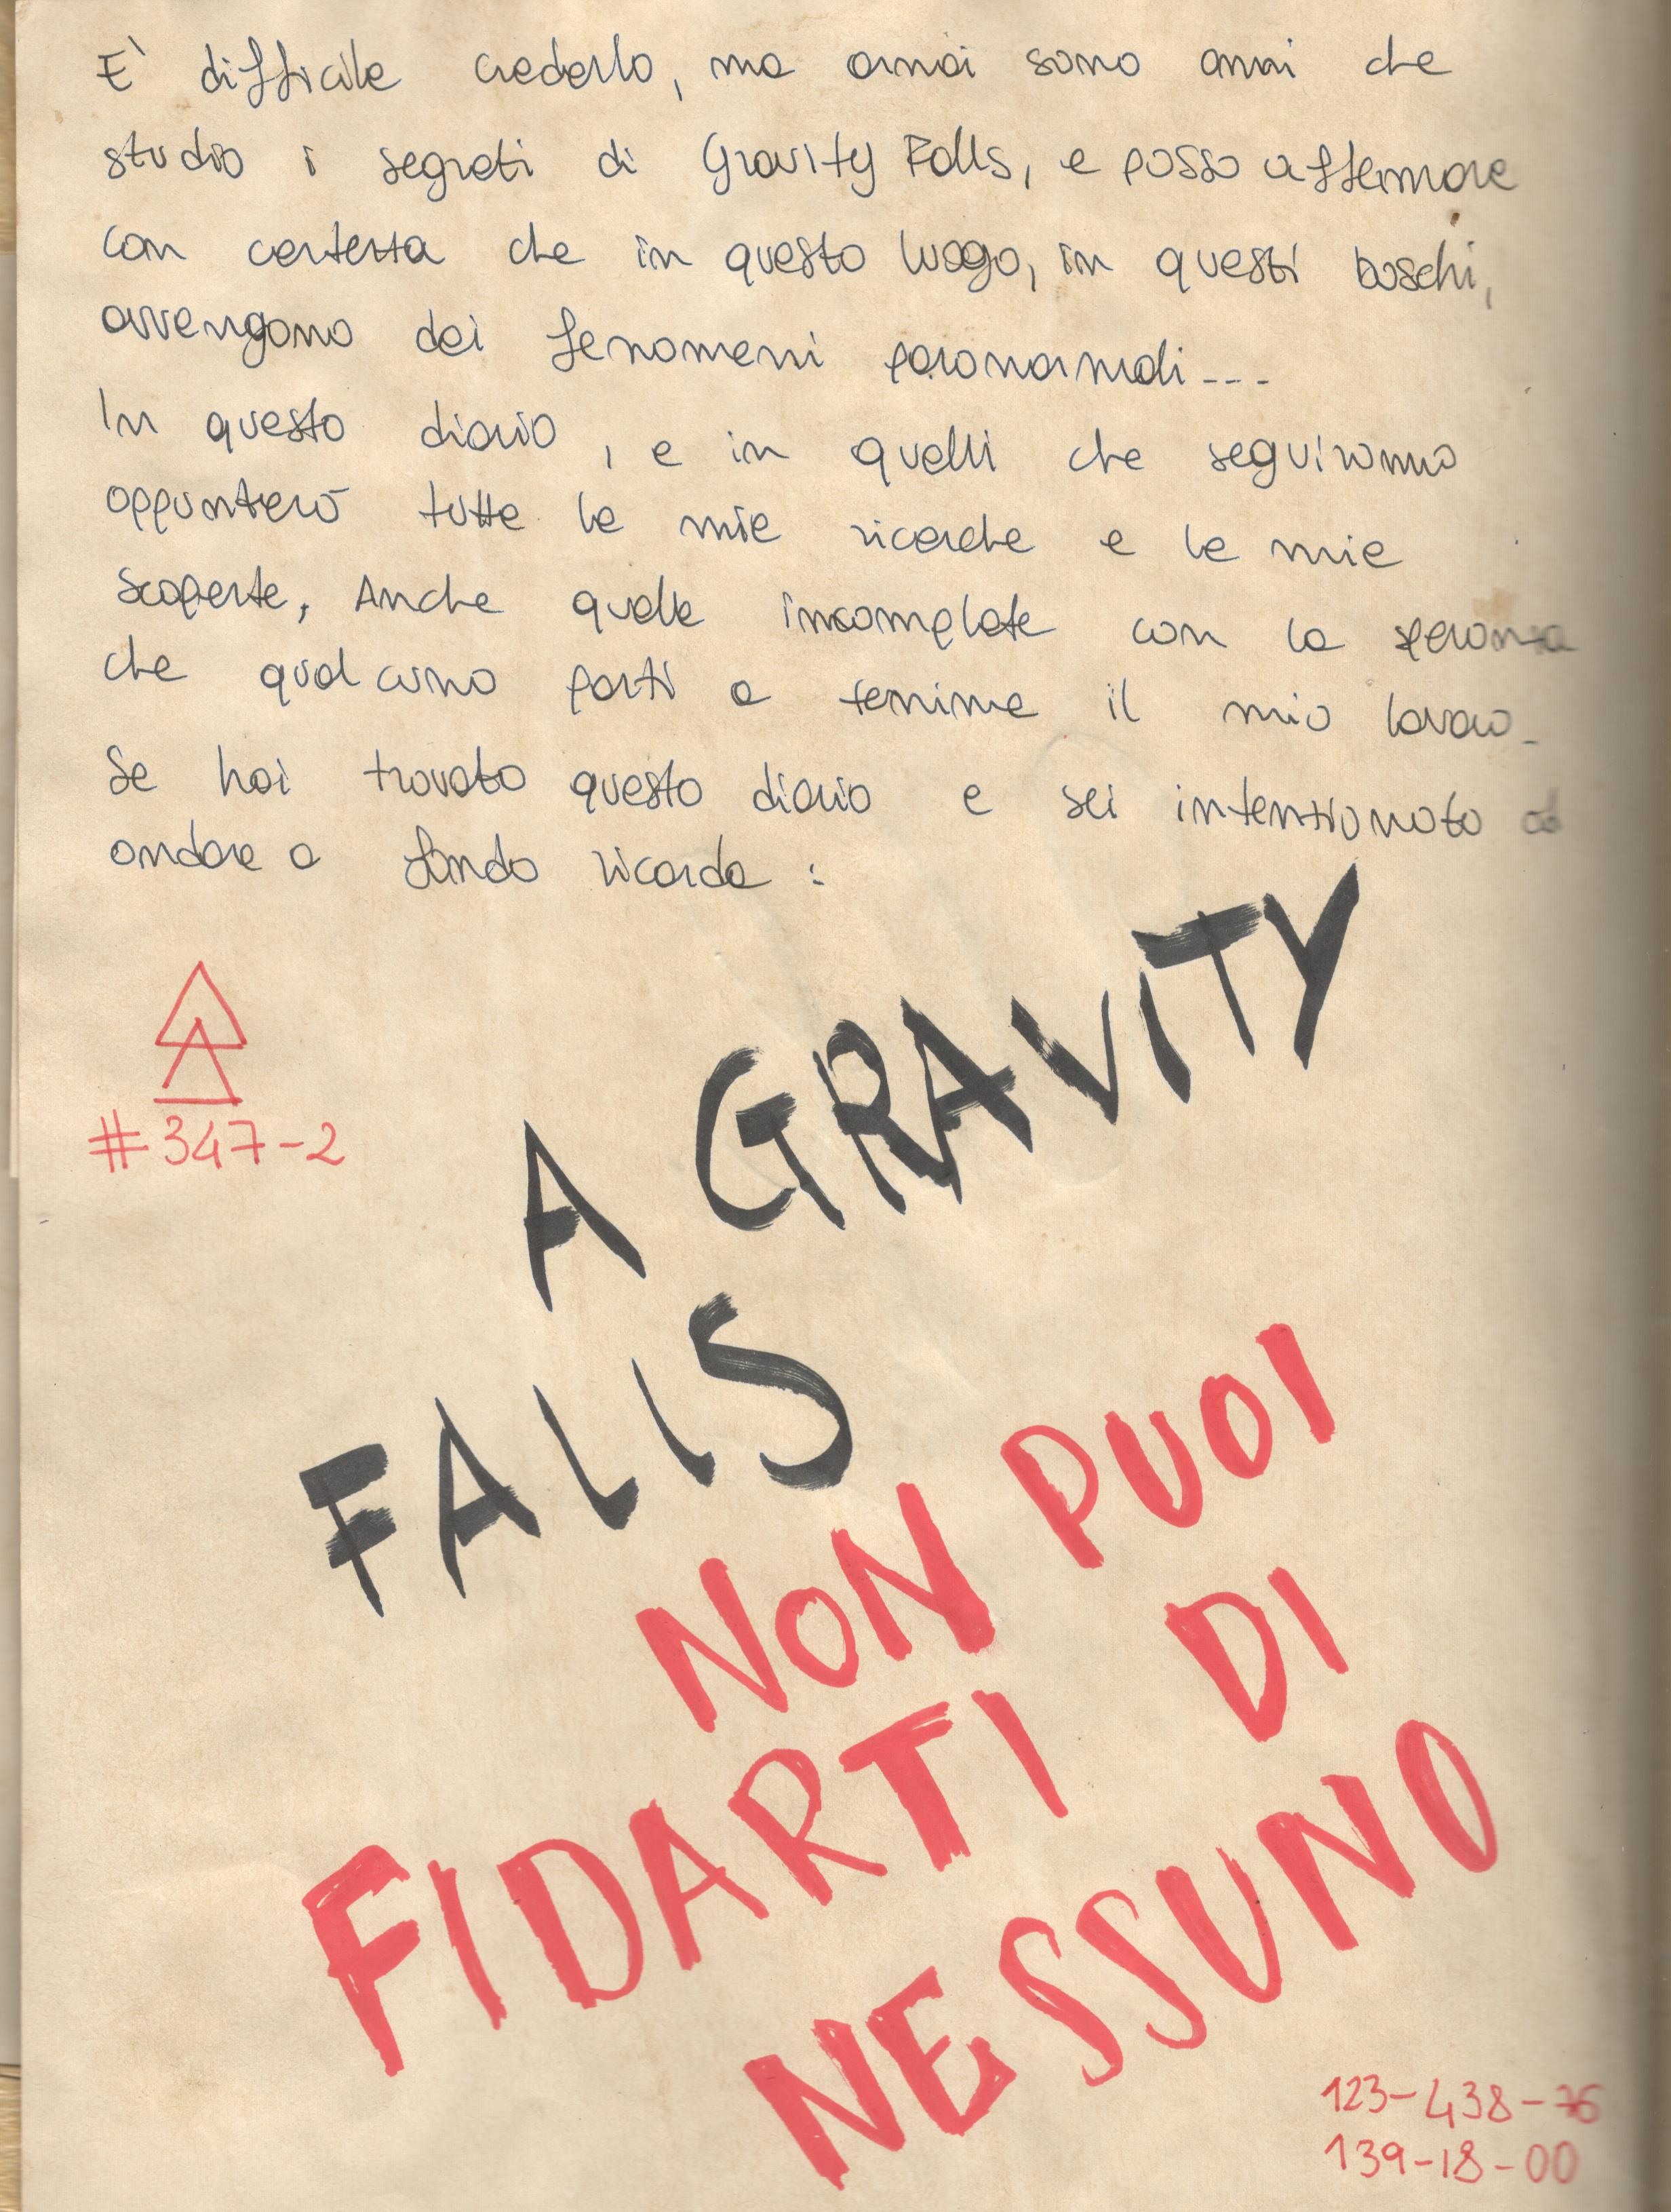 E' difficile crederlo, ma ormai sono anni che
studio i segreti di Gravity Falls, e posso affermare
con certezza che in questo luogo, in questi boschi,
avvengono dei fenomeni paranormali---
In questo diario, e in quelli che seguiranno
appunterò tutte le mie ricerche e le mie
scoperte, Anche quelle incomplete con la speranza
che qualcuno porti a termine il mio lavoro-
Se hai trovato questo diario e sei intenzionato ad
andare a fondo ricorda:
A GRAVITY
FALLS
NON PUOI
FIDARTI DI
NESSUNO
#347-2
123-438-76
139-18-00